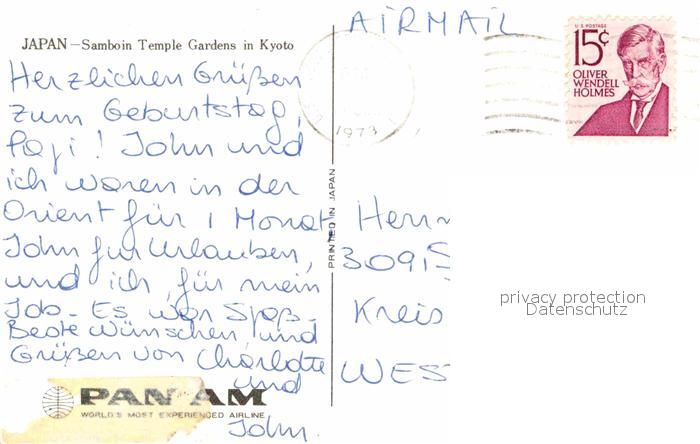 JAPAN — Samboin Temple Gardens in Kyoto
Herzlichen Grüßen
zum Geburtstag,
Papi! John und
ich waren in der
Orient für 1 Monat
John für Urlauben,
und ich für mein
Job. Es war Spaß.
Beste Wünschen und
Grüßen von Charlotte
und
John.
PAN AM
WORLD'S MOST EXPERIENCED AIRLINE
PRINTED IN JAPAN
AIRMAIL
1973
U.S. POSTAGE
15¢
OLIVER
WENDELL
HOLMES
Herrn
3091
Kreis
WES
privacy protection
Datenschutz